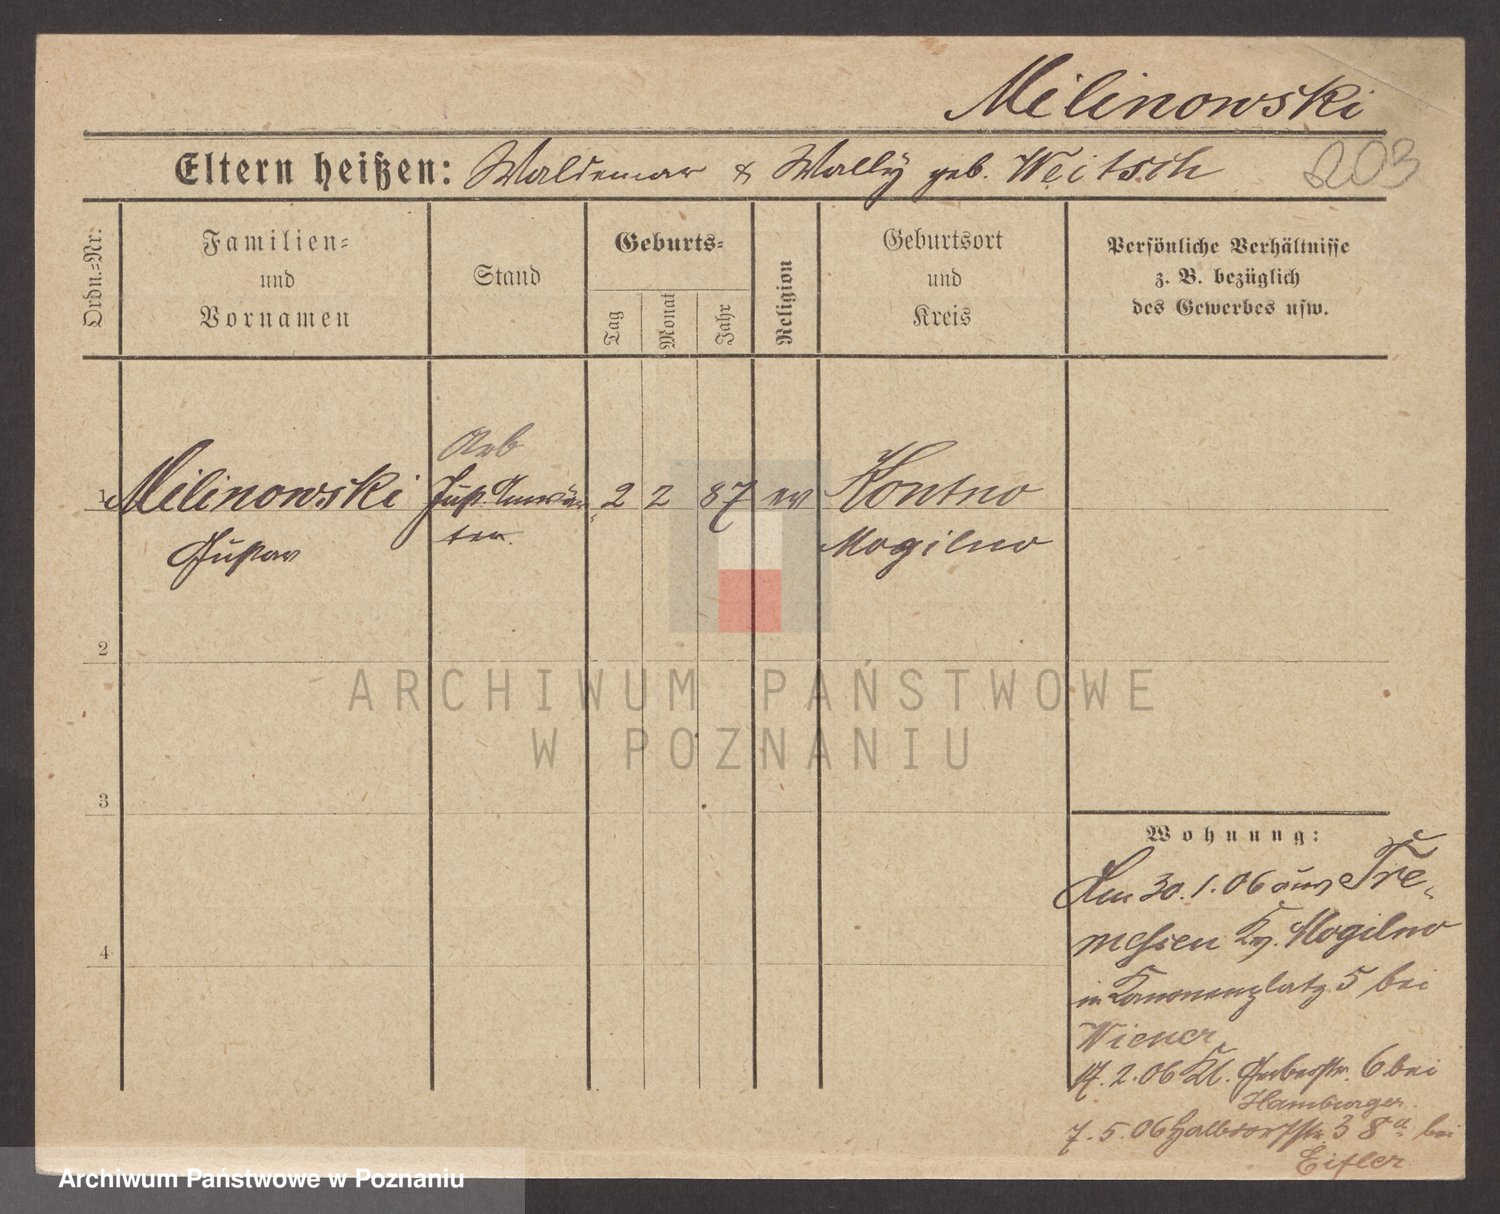 Milinowski
Eltern heißen: Waldemar & Wally geb. Weitsch
203
Ordn.-Nr.
Familien-
und
Vornamen
Stand
Geburts-
Tag
Monat
Jahr
Religion
Geburtsort
und
Kreis
Persönliche Verhältnisse
z. B. bezüglich
des Gewerbes usw.
Arb
1 Milinowski Just. Anwär- 2 2 87 ev Kontno
Gustav ter. Mogilno
2
3
4
Wohnung:
Am 30.1.06 aus Tre-
messen Kr. Mogilno
in Kanonenplatz 5 bei
Wiener
17.2.06 Kl. Gerberstr. 6 bei
Hamburger
7.5.06 Halbdorfstr. 38a bei
Eitler
ARCHIWUM PAŃSTWOWE
W POZNANIU
Archiwum Państwowe w Poznaniu